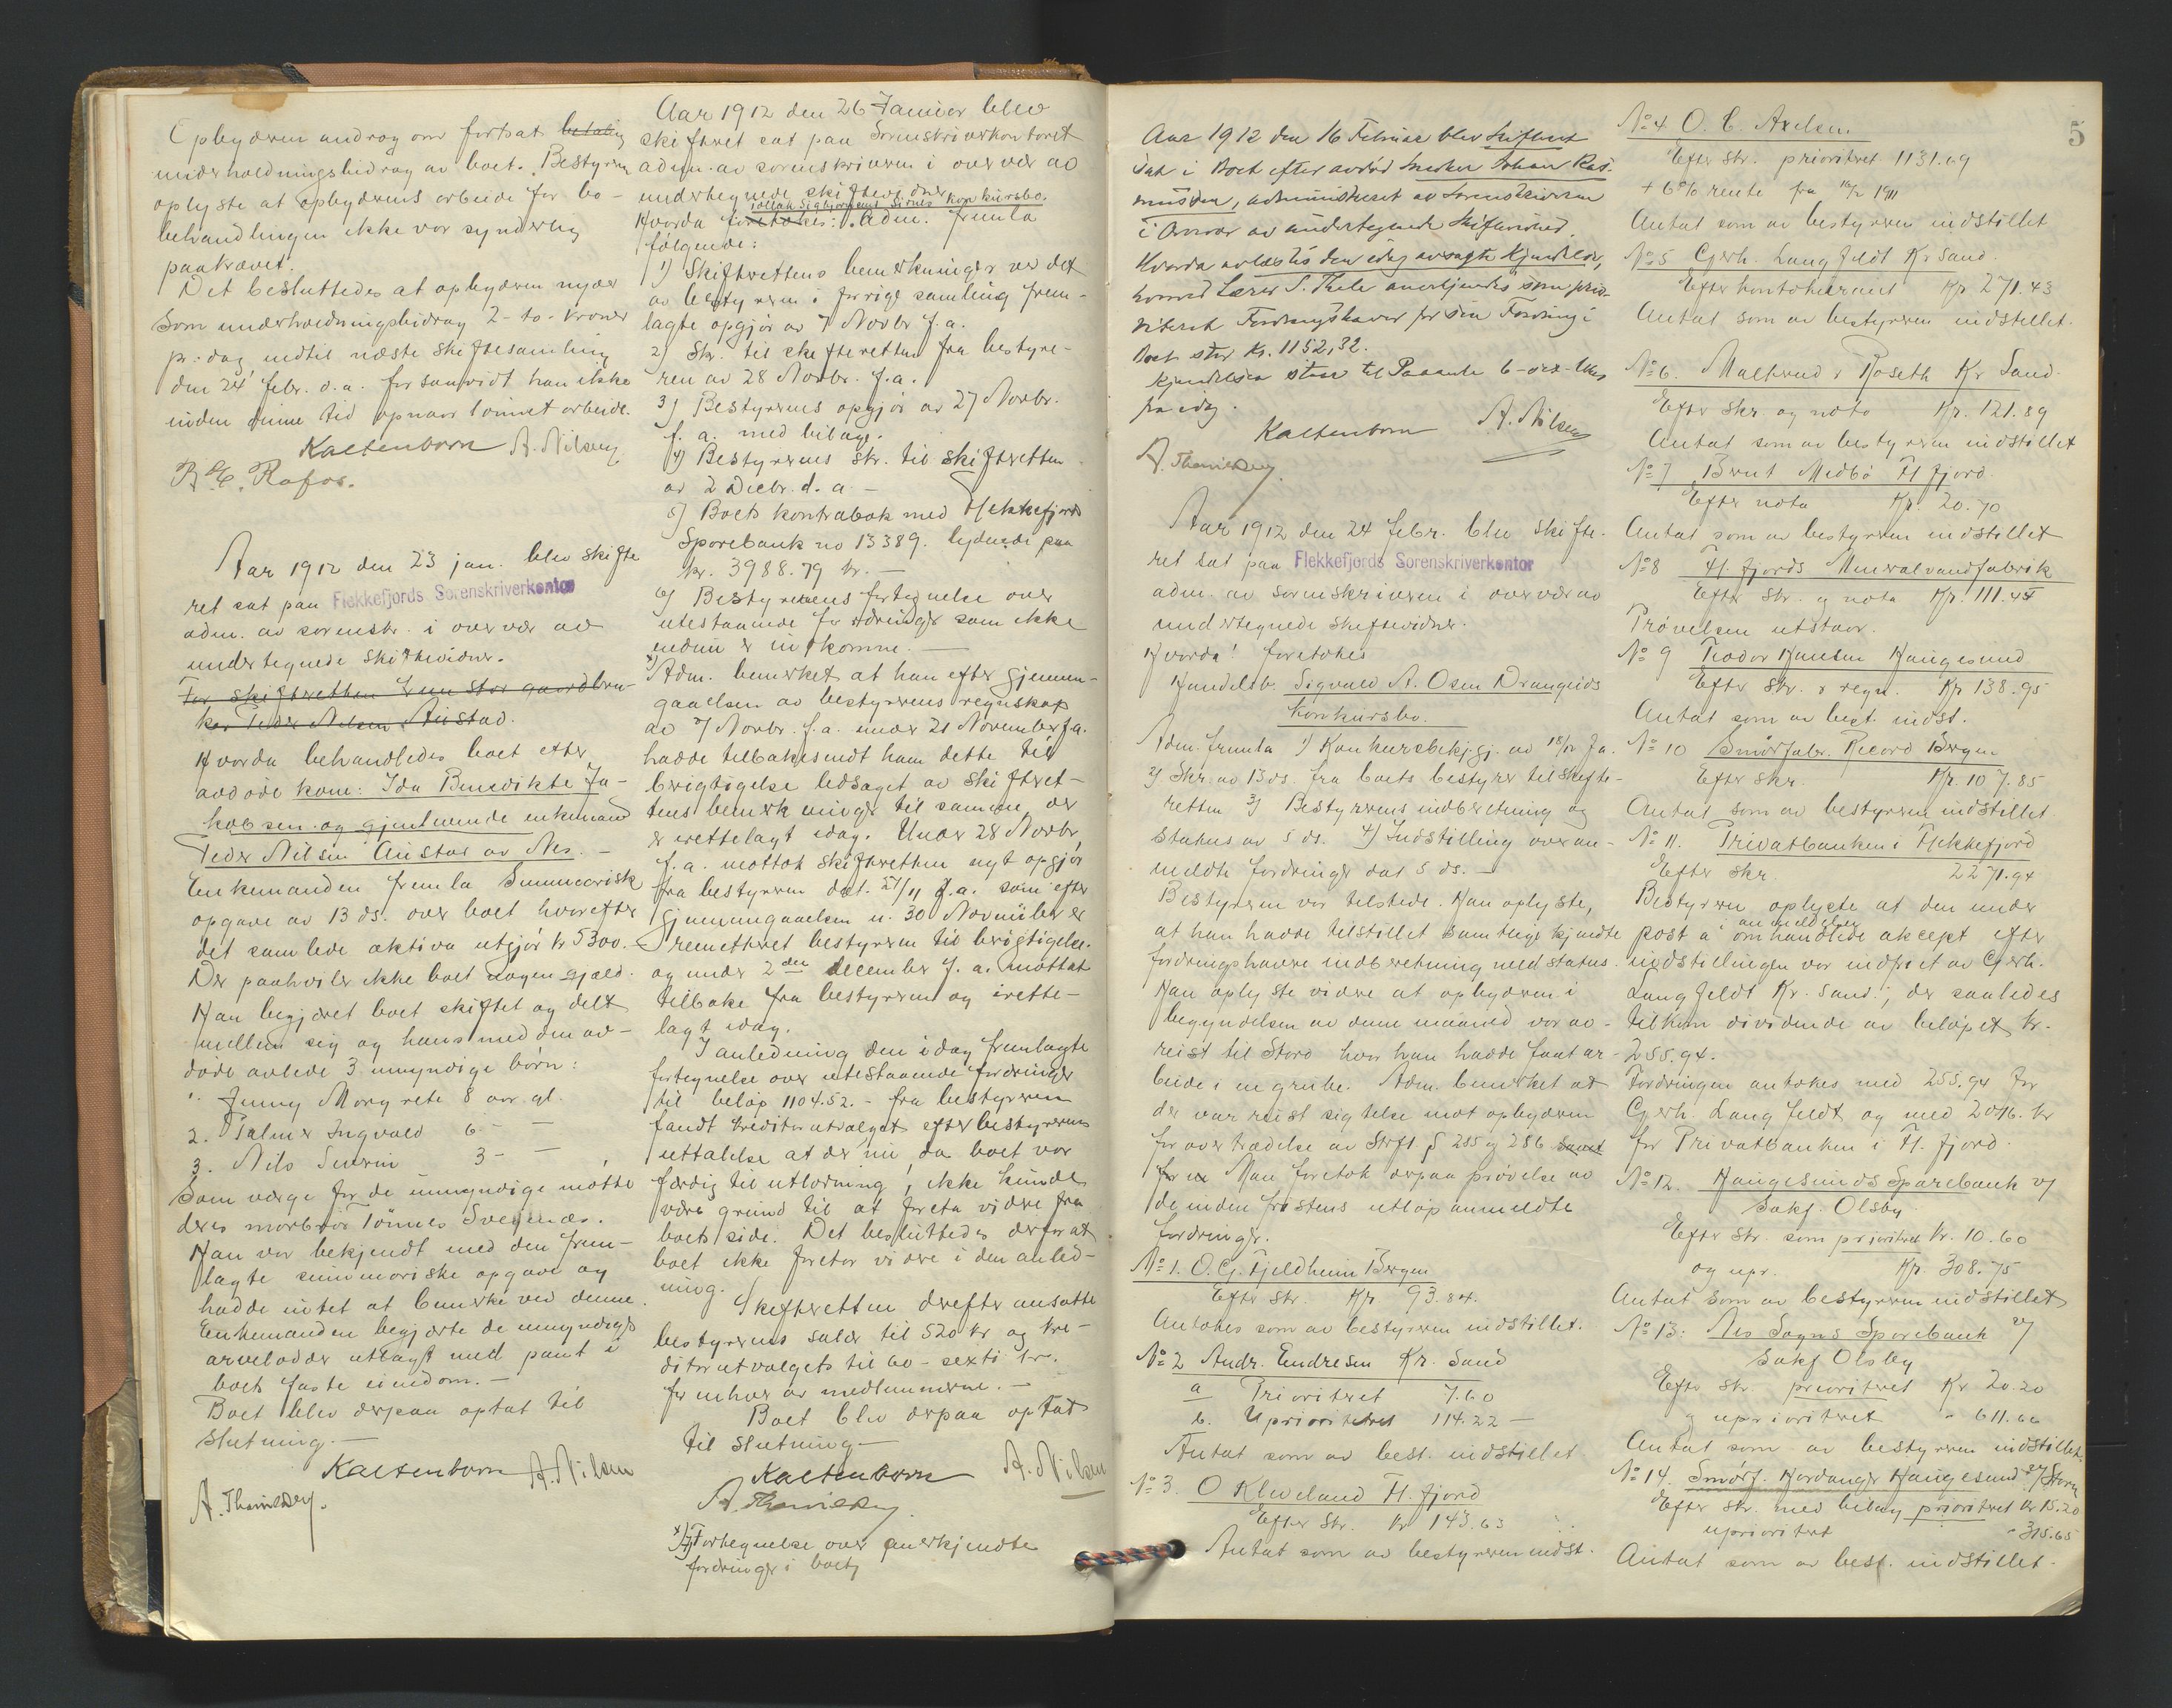 Opbyderen androg om fortsat betaling
underholdningsbidrag av boet. Bestyreren
oplyste at opbyderens arbeide for bo-
behandlingen ikke var synderlig
paakrævet.
Det besluttedes at opbyderen nyder
som underholdningsbidrag 2 - to - kroner
pr. dag indtil næste skiftesamling
den 24 febr. d.a. forsaavidt han ikke
inden denne tid opnaar lønnet arbeide.
Kaltenborn A. Nilsen
R. E. Rafos.
Aar 1912 den 23 jan. blev skifte
ret sat paa Flekkefjords Sorenskriverkontor
adm. av sorenskr. i overvær av
undertegnede skiftevidner.
For skifteretten frem stod gaardbru-
ker Peder Nilsen Austad.
Hvorda behandledes boet efter
avdøde kone: Ida Benedikte Ja-
kobsen og gjenlevende enkemand
Peder Nilsen Austad av Nes. -
Enkemanden fremla Summarisk
opgave av 13 ds. over boet hvorefter
det samlede aktiva utgjør kr 5300.-
Der paahviler ikke boet nogen gjæld.
Han begjæret boet skiftet og delt
mellem sig og hans med den av-
døde avlede 3 umyndige børn:
1. Jenny Margrete 8 aar gl.
2. Palmer Ingvald 6 - -
3. Nils Severin 3 - -
Som værge for de umyndige møtte
deres morbror Tønnes Svegenes.
Han var bekjendt med den frem-
lagte summariske opgave og
hadde intet at bemerke ved denne.
Enkemanden begjærte de umyndiges
arvelodder utlagt med pant i
boets faste eiendom. -
Boet blev derpaa optat til
slutning. -
Kaltenborn A. Nilsen
A. Thomsen.
Aar 1912 den 26 Januar blev
skifteret sat paa Sorenskriverkontoret
adm. av sorenskriveren i overvær av
undertegnede skiftevidner
Tollak Sigbjørnsens Sirnes konkursbo.
Hvorda foretokes: Adm. fremla
følgende:
1) Skifterettens bemerkninger ved det
av bestyreren i forrige samling frem-
lagte opgjør av 7 Novbr f.a.
2) Skr. til skifteretten fra bestyre-
ren av 28 Novbr. f.a.
3) Bestyrerens opgjør av 27 Novbr.
f. a. med bilage.
4) Bestyrerens skr. til skifteretten
av 2 Decbr. d. a -
5) Boets kontrabok med Flekkefjords
Sparebank no 13389. lydende paa
kr. 3988.79 kr. -
6) Bestyrerens fortegnelse over
utestaaende fordringer som ikke
endnu er indkomne. -
x) Adm. bemerket at han efter gjennem-
gaaelsen av bestyrerens regnskap
av 7 Novbr. f.a. under 21 November f.a.
hadde tilbakesendt ham dette til
berigtigelse ledsaget av skifteret-
tens bemerkninger til samme, der
er irettelagt idag. Under 28 Novbr
f. a. mottok skifteretten nyt opgjør
fra bestyreren dat. 27/11 f.a. som efter
gjennemgaaelsen u. 30 November er
remitteret bestyreren til berigtigelse.
og under 2den december f. a. mottat
tilbake fra bestyreren og irette-
lagt idag.
I anledning den idag fremlagte
fortegnelse over utestaaende fordringer
til beløp 1104.52. - fra bestyreren
fandt kreditorutvalget efter bestyrerens
uttalelse at der nu, da boet var
færdig til utlodning, ikke kunde
være grund til at foreta videre fra
boets side. Det besluttedes derfor at
boet ikke foretar videre i den anled-
ning.
Skifteretten derefter ansatte
bestyrerens salær til 520 kr og kre-
ditorutvalgets til 60 - sexti kr.
for enhver av medlemmerne. -
Boet blev derpaa optat
til slutning -
Kaltenborn A. Nilsen
A. Thomsen.
x) 7) Fortegnelse over anerkjendte
fordringer i boet,
Aar 1912 den 16 Februar blev Skifteret
sat i Boet efter avdød Snedker Johan Ras-
mussen, administreret av Sorenskriveren
i Overvær av undertegnede Skiftevidner.
Hvorda avlæstes den idag avsagte Kjendelse,
hvorved Lærer S. Thele anerkjendes som prio-
riteret Fordringshaver for sin Fordring i
Boet stor Kr. 1152,32.
Kjendelsen staar til Paaanke 6-sex-Uker
fra idag.
Kaltenborn A. Nilsen
A. Thomsen.
Aar 1912 den 24 febr. blev skifte-
ret sat paa Flekkefjords Sorenskriverkontor
adm. av sorenskriveren i overvær av
undertegnede skiftevidner.
Hvorda! foretokes
Handelsb. Sigvald A. Osen Drangeids
konkursbo.
Adm. fremla 1) Konkursbekj.gj. av 18/12 f.a.
2) Skr. av 13 ds. fra boets bestyrer til skifte-
retten 3) Bestyrerens indberetning og
status av 5 ds. 4) Indstilling over an-
meldte fordringer dat 5 ds. -
Bestyreren var tilstede. Han oplyste,
at han havde tilstillet samtlige kjendte
fordringshavere indberetning med status.
Han oplyste videre at opbyderen i
begyndelsen av denne maaned var av-
reist til Stord hvor han hadde faat ar-
beide i en grube. Adm. bemerket at
der var reist sigtelse mot opbyderen
for overtrædelse av Strfl. § 285 og 286 samt
for en Man foretok derpaa prøvelse av
de inden fristens utløp anmeldte
fordringer.
No 1. O. G. Fjeldheim Bergen
Efter skr. Kr 93.84.
Antokes som av bestyreren indstillet.
No 2 Andr. Endresen Kr. Sand
a Prioriteret 7.60
b. Uprioriteret 114.22 -
Antat som av best. indstillet
No 3. O Kleveland Fl. fjord
Efter skr. kr 143.63
Antat som av bestyreren indst.
5
No 4 O. C. Axelsen.
Efter skr. prioriteret 1131.69
+ 6% rente fra 10/2 1911
Antat som av bestyreren indstillet
No 5 Gerh. Langfeldt Kr Sand.
Efter kontokurant Kr 271.43
Antat som av bestyreren indstillet.
No 6. Malterud & Roseth Kr Sand.
Efter skr. og nota Kr. 121.89
Antat som av bestyreren indstillet
No 7 Brut Medbø Fl fjord.
Efter nota Kr. 20.70
Antat som av bestyreren indstillet
No 8 Fl. fjords Mineralvandfabrik
Efter skr. og nota Kr. 111.45
Prøvelsen utstaar.
No 9 Teodor Hansen Haugesund
Efter skr. & regn. Kr 138.95
Antat som av best. indst.
No 10 Smørfabr. Record Bergen
Efter skr. Kr. 107.85
Antat som av bestyreren indstillet
No 11. Privatbanken i Flekkefjord
Efter skr. 2271.94
Bestyreren oplyste at den under
post a anmeldelsen omhandlede akcept efter
indstillingen var indfriet av Gerh.
Langfeldt Kr. Sand; der saaledes
tilkom dividende av beløpet kr.
255.94.
Fordringen antokes med 255.94 for
Gerh. Langfeldt og med 2016. kr
for Privatbanken i Fl. fjord.
No 12. Haugesunds Sparebank v/
Sakf. Olsby
Efter skr. som prioriteret Kr. 10.60
og upr. Kr. 308.75
Antat som av bestyreren indstillet
No 13: Nes Sogns Sparebank v/
Sakf Olsby
Efter skr. prioriteret Kr 20.20
og uprioriteret " 611.66
Antat som av bestyreren indstillet.
No 14. Smørf. Hardanger Haugesund v/
Efter skr. med bilag prioriteret kr 15.20
uprioritert " 315.65
Antat som av best. indstillet.